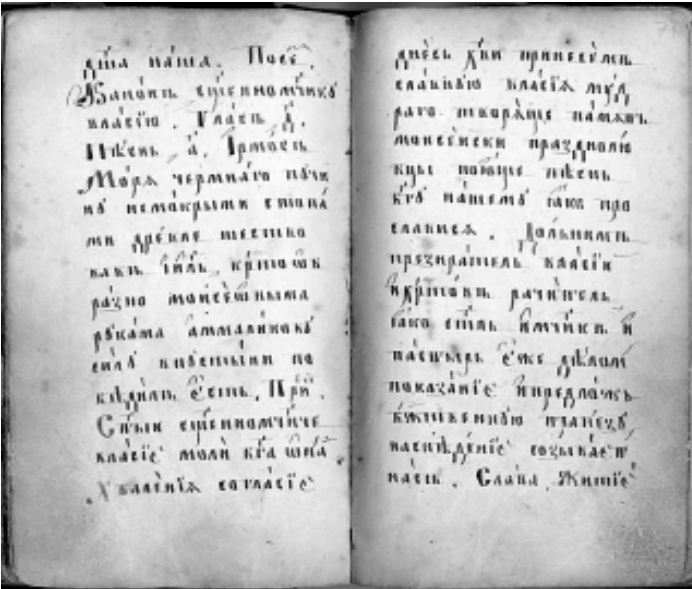 дш҃а на́ша. Посе҃.
Канѡ́нъ сщ҃енномч҃нкꙋ
вла́сїю. Гла́съ д҃.
Пѣ́снь, а҃. Ірмо́съ
Мо́рѧ чермна́го пꙋчи
нꙋ немо́крыми стопа́
ми дре́вле шествꙋ
во моисе́ѡвыма
рꙋка́ма аммали́ковꙋ
си́лꙋ впꙋсты́ни по
бѣди́лъ є́сть. При҃.
Ст҃ы́и сщ҃енномч҃нче
вла́сїе моли́ бг҃а ѡна́
Хвале́нїѧ согла́сїе
дне́сь принесе́мъ
сла́вномꙋ вла́сїѧ мꙋ́д
раго творѧ́ще па́мѧть
моисе́йски празднолю́
бцы пою́ще пѣ́снь
бг҃ꙋ на́шемꙋ ꙗ́кѡ про
сла́висѧ. До́льнимъ
презира́тель вла́сїи
рачи́тель
ꙗ́кѡ ст҃ль и҆мч҃нкъ и҆
па́стырь є́же дѣ́лом
показа́нїе и҆предло́жь
бж҃е́ственнꙋю трапе́зꙋ
наснѣде́нїе созыва́етъ
на́съ. Сла́ва. Житїе́